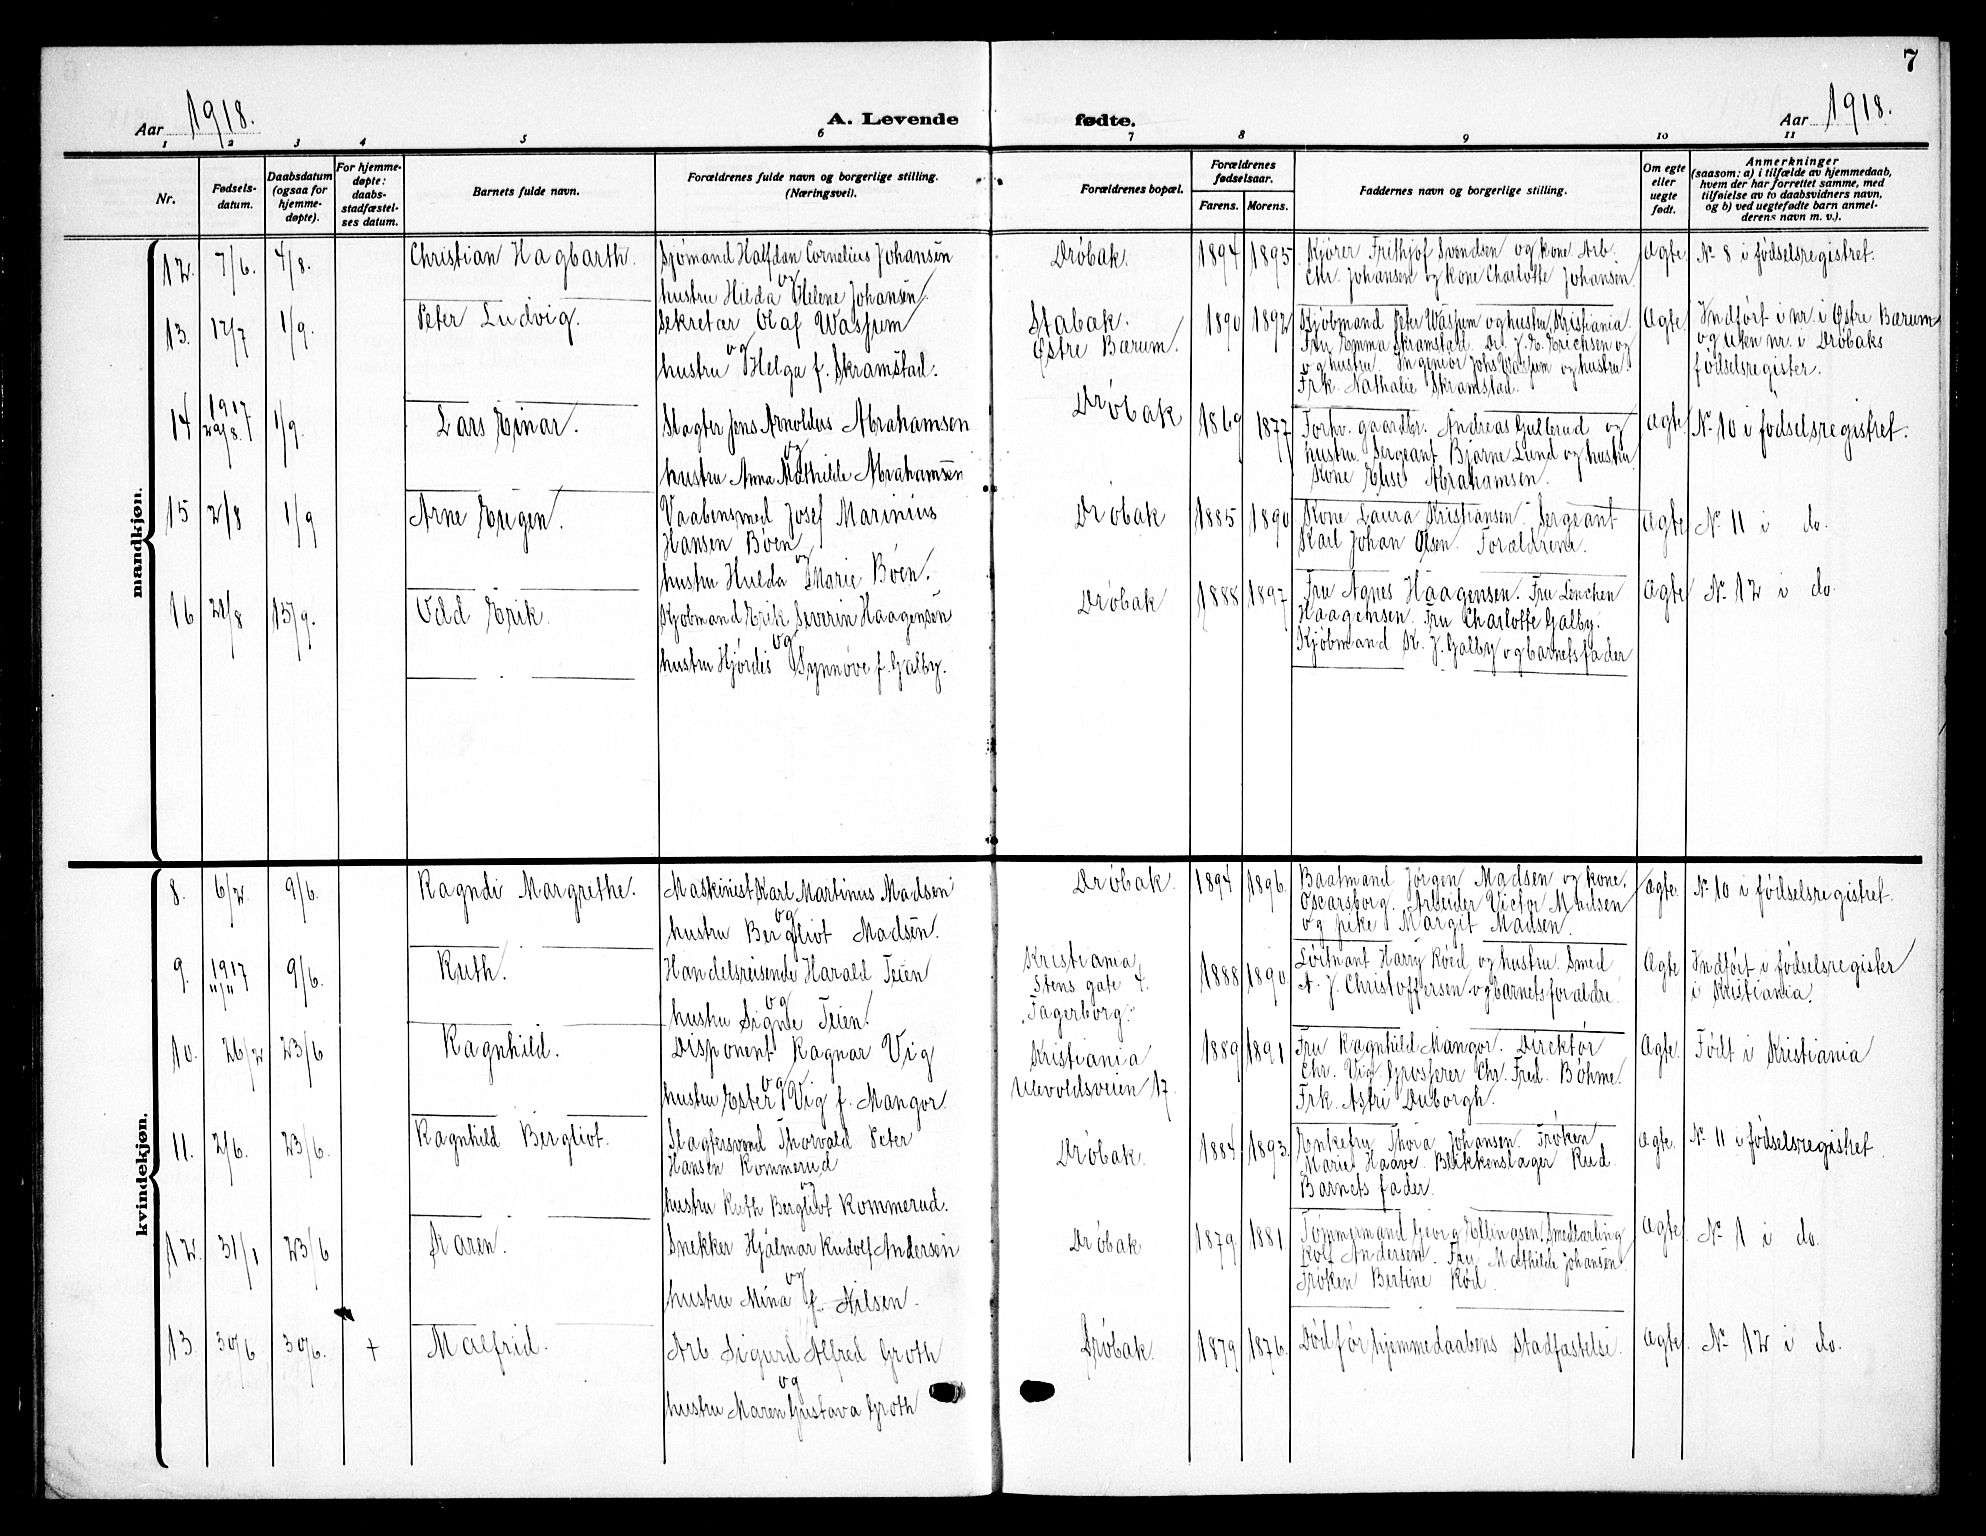 7
Aar 1918.
A. Levende fødte.
Aar 1918.
1 2 3 4 5 6 7 8 9 10 11
Nr.
Fødsels-
datum.
Daabsdatum
(ogsaa for
hjemme-
døpte).
For hjemme-
døpte:
daabs-
stadfæstel-
ses datum.
Barnets fulde navn.
Forældrenes fulde navn og borgerlige stilling.
(Næringsvei).
Forældrenes bopæl.
Forældrenes
fødselsaar.
Farens. Morens.
Faddernes navn og borgerlige stilling.
Om egte
eller
uegte
født.
Anmerkninger
(saasom: a) i tilfælde av hjemmedaab,
hvem der har forrettet samme, med
tilføielse av to daabsvidners navn,
og b) ved uegtefødte barn anmel-
derens navn m. v.).
mandkjøn.
12. 7/6. 4/8. Christian Hagbarth.
Sjømand Halfdan Cornelius Johansen
og
hustru Hilda Helene Johansen
Drøbak. 1894 1895
Kjører Frithjof Svendsen og kone Arb.
Chr. Johansen og kone Charlotte Johansen
Ægte N° 8 i fødselsregistret.
13. 12/7 1/9. Peter Ludvig.
Sekretær Olaf Wassum
og
hustru Helga f. Skramstad.
Stabæk.
Østre Bærum.
1890 1892
Kjøbmand Peter Wassum og hustru, Kristiania.
Fru Emma Skramstad. Dr. J. E. Erichsen og
og hustru. Ingeniør Johs Wassum og hustru.
Frk. Nathalie Skramstad.
Ægte Indført i nr. i Østre Bærum
og uten nr. i Drøbaks
fødselsregister.
14 1917
29/8. 1/9. Lars Einar.
Slagter Jens Arnoldus Abrahamsen
og
hustru Anna Mathilde Abrahamsen
Drøbak 1869 1877
Forhv. gaardbr. Andreas Gullerud og
hustru. Sergeant Bjarne Lund og hustru.
Kone Elise Abrahamsen.
Ægte N° 10 i fødselsregistret.
15 2/8 1/9 Arne Eugen.
Vaabensmed Josef Marinius
Hansen Bøen
og
hustru Hulda Marie Bøen.
Drøbak 1885 1890
Kone Laura Kristiansen. Sergeant
Karl Johan Olsen. Forældrene.
Ægte N° 11 i do.
16 21/8 15/9. Odd Erik.
Kjøbmand Erik Severin Haagensen
og
hustru Hjørdis Synnøve f. Galby.
Drøbak 1888 1897
Fru Agnes Haagensen. Fru Lenchen
Haagensen. Fru Charlotte Galby.
Kjøbmand K. J. Galby og barnets fader
Ægte N° 12 i do.
kvindekjøn.
8. 6/2. 9/6. Ragndi Margrethe.
Maskinist Karl Martinus Madsen
og
hustru Bergliot Madsen.
Drøbak. 1894 1896.
Baatmand Jørgen Madsen og kone,
Oscarsborg. Arbeider Victor Madsen
og pike Margit Madsen.
Ægte. N° 10 i fødselsregistret.
9. 1917
11/11 9/6. Ruth.
Handelsreisende Harald Teien
og
hustru Signe Teien.
Kristiania,
Stens gate 4.
Fagerborg.
1888 1890
Løitnant Harry Roed og hustru. Smed
A. J. Christoffersen og barnets forældre.
Ægte Indført i fødselsregister
i Kristiania.
10. 26/2 23/6 Ragnhild.
Disponent Ragnar Vig
og
hustru Ester Vig f. Mangor.
Kristiania
Ullevoldsveien 17.
1889 1891
Fru Ragnhild Mangor. Direktør
Chr. Vig. Grosserer Chr. Fred. Böhme.
Frk. Astri Duborgh.
Ægte. Født i Kristiania
11. 2/6. 23/6. Ragnhild Bergliot.
Slagtersvend Thorvald Peter
Hansen Kommerud
og
hustru Ruth Bergliot Kommerud.
Drøbak. 1884 1893.
Enkefru Thora Johansen. Frøken
Marie Haave. Blikkenslager Rud.
Barnets fader.
Ægte. N° 11 i fødselsregistret
12. 31/1 23/6 Karen.
Snekker Hjalmar Rudolf Andersen
og
hustru Mina f. Nilsen.
Drøbak 1879 1881
Tømmermand Georg Ellingsen. Smedlærling
Rolf Andersen. Fru Mathilde Johansen.
Frøken Bertine Röd.
Ægte N° 1 i do.
13. 30/6 30/6. + Malfrid.
Arb. Sigurd Alfred Groth
og
hustru Maren Gustava Groth
Drøbak. 1879 1876.
Død før hjemmedaabens Stadfæstelse.
Ægte N° 12 i do.